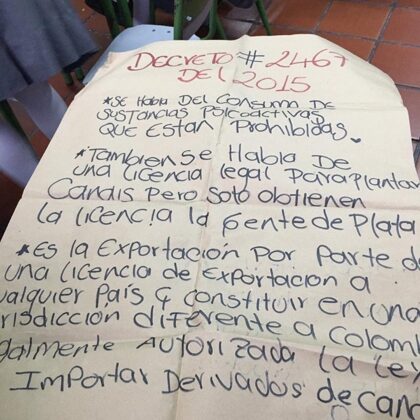 DECRETO # 2467
DEL 2015
*SE Habla DEL Consumo DE
SUSTANCIAS PSICOACTIVAS
QUE ESTAN PROHIBIDAS.
*TAMBIEN SE HABLA DE
UNA LICENCIA LEGAL PARA PLANTA
CANAIS PERO SOLO OBTIENEN
LA LICENCIA LA GENTE DE PLATA
*ES LA EXPORTACIÓN POR PARTE DE
UNA LICENCIA DE EXPORTACION A
ualquier PAIS Q CONSTITUIR EN UNA
RISDICCION DIFERENTE A COLOMB
galmente AUTORIZADA LA LEY
IMPORTAR DERIVADOS DE CANA